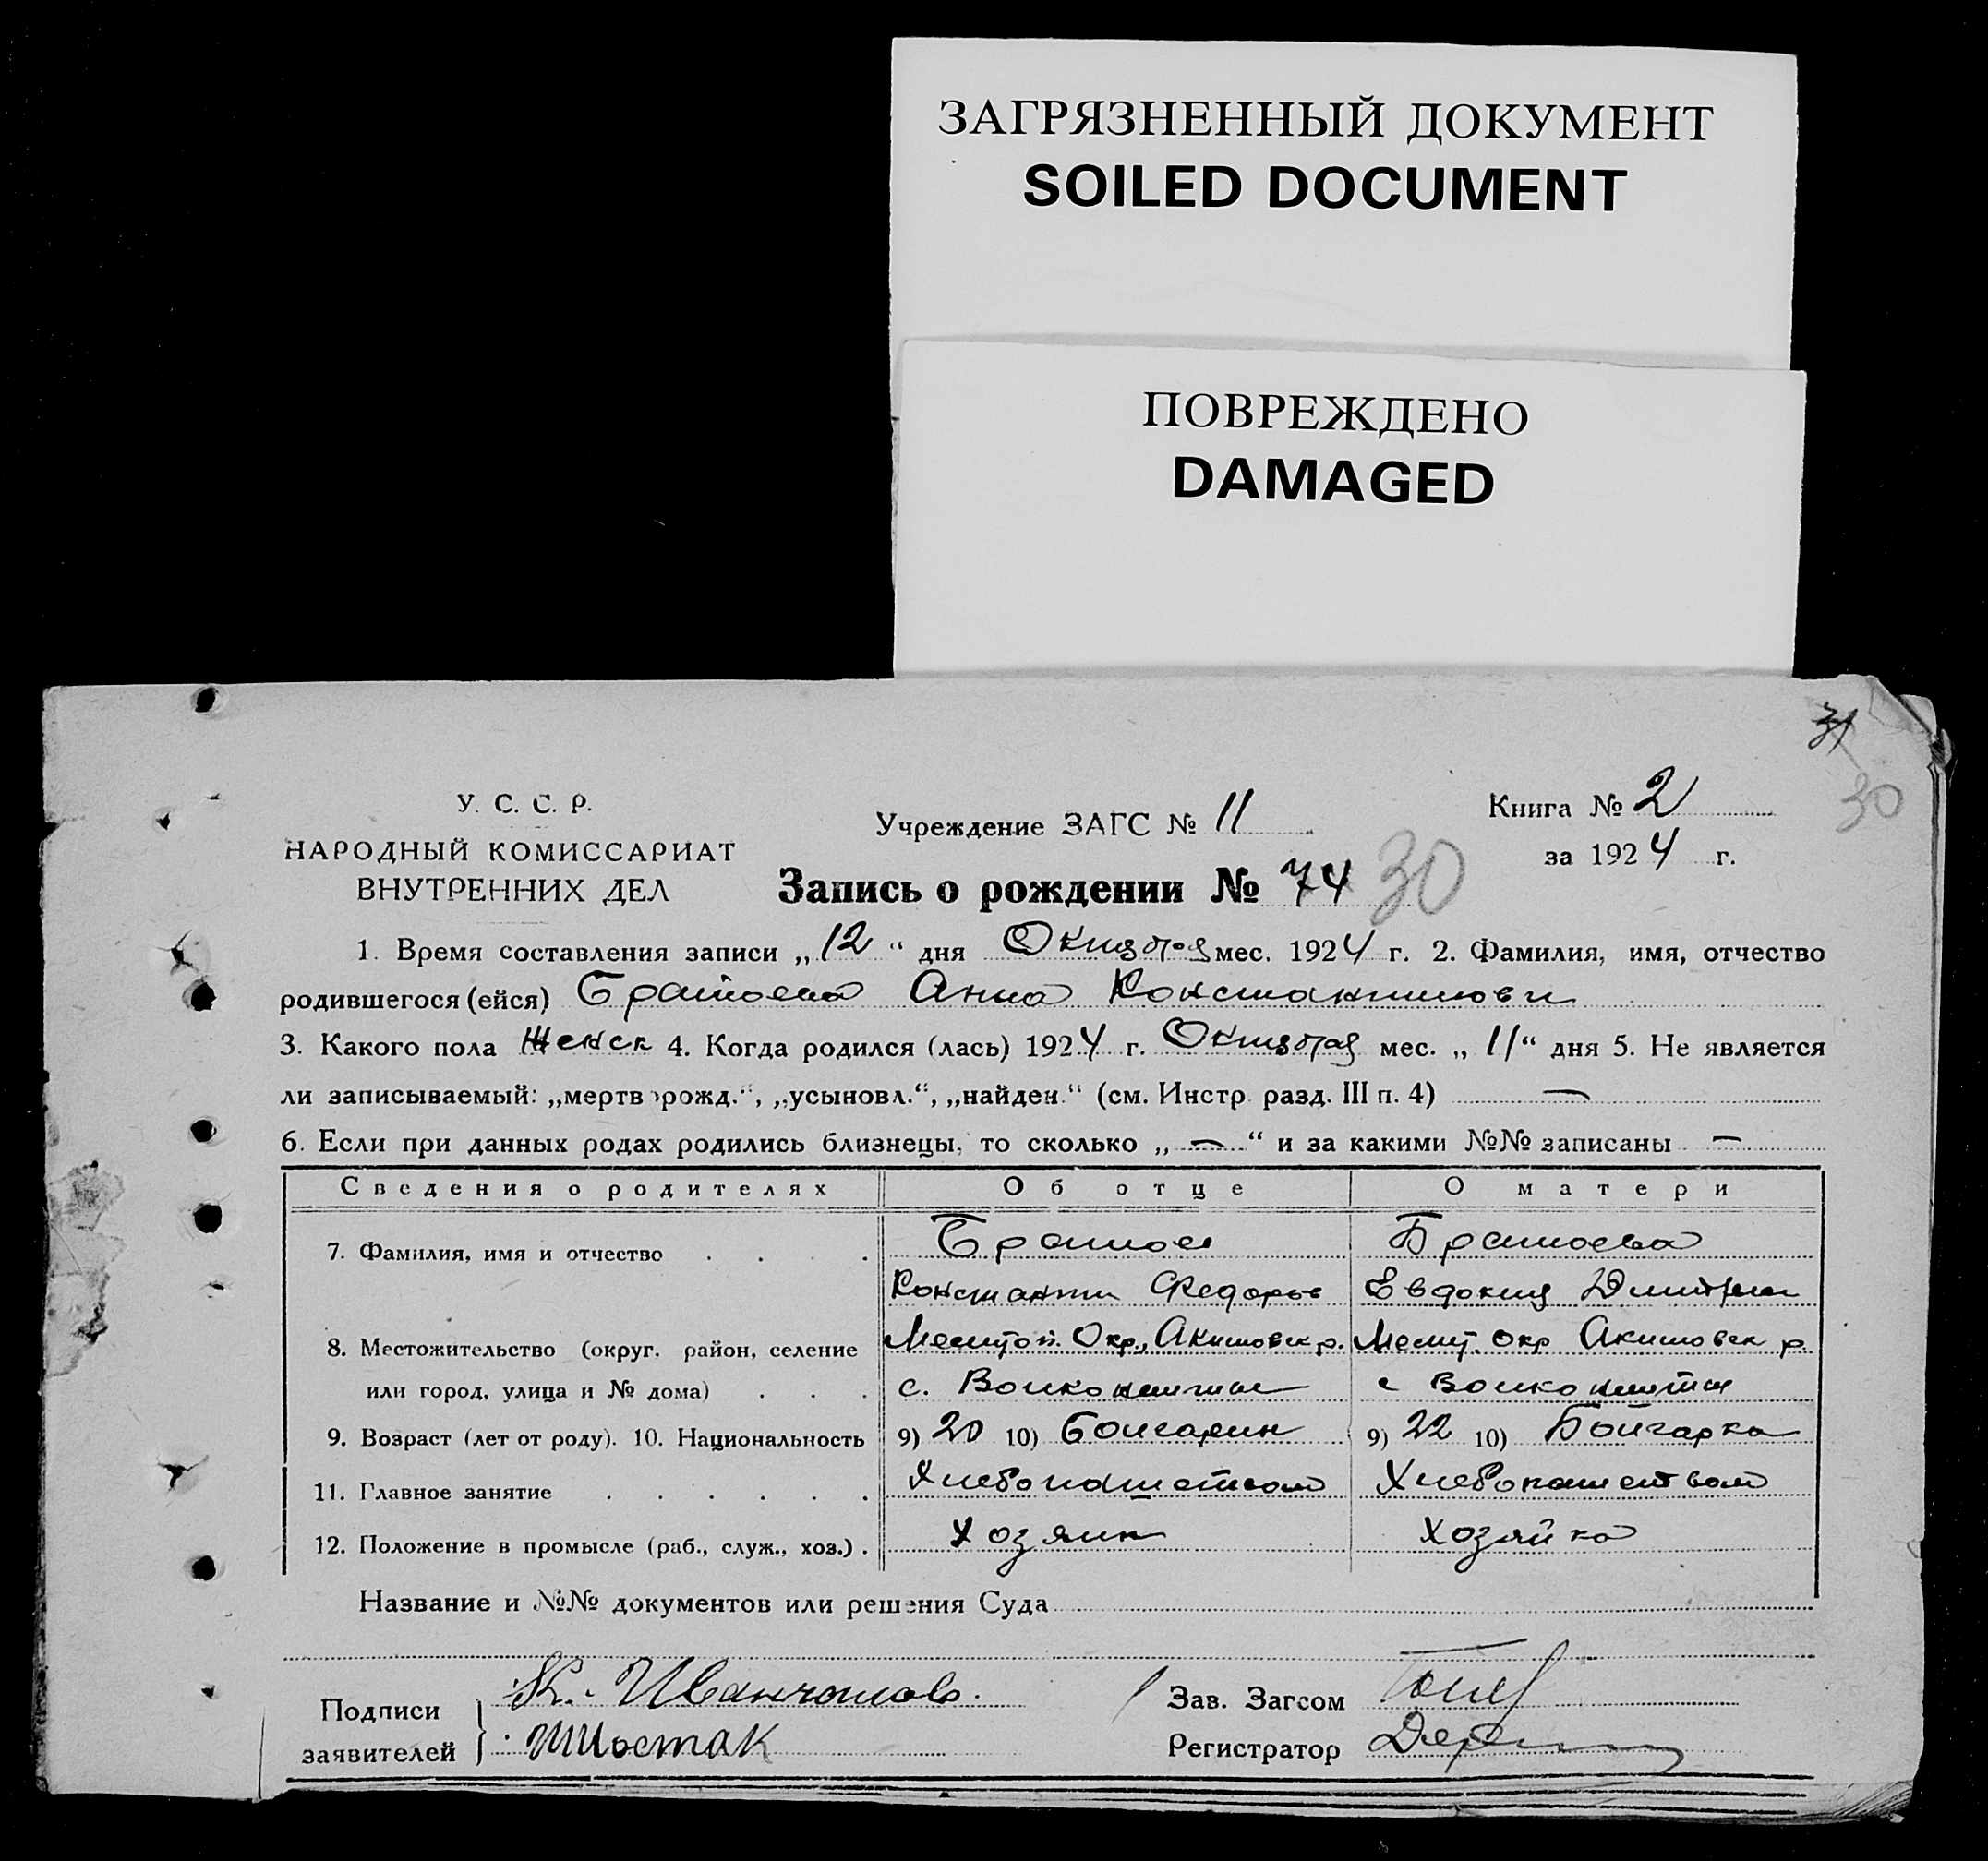 ЗАГРЯЗНЕННЫЙ ДОКУМЕНТ
SOILED DOCUMENT
ПОВРЕЖДЕНО
DAMAGED
31
30
У. С. С. Р.
НАРОДНЫЙ КОМИССАРИАТ
ВНУТРЕННИХ ДЕЛ
Учреждение ЗАГС № 11
Книга № 2
за 1924 г.
Запись о рождении № 74 30
1. Время составления записи „12“ дня Октября мес. 1924 г. 2. Фамилия, имя, отчество
родившегося (ейся) Братоева Анна Константинови
3. Какого пола Женск 4. Когда родился (лась) 1924 г. Октября мес. „11“ дня 5. Не является
ли записываемый: „мертворожд.“, „усыновл.“, „найден.“ (см. Инстр. разд. III п. 4) —
6. Если при данных родах родились близнецы, то сколько „—“ и за какими №№ записаны —
Сведения о родителях Об отце О матери
7. Фамилия, имя и отчество Братоев Братоева
Константи Федоров Евдокия Дмитри
8. Местожительство (округ. район, селение Мелитоп. Окр., Акимовск р. Мелит. окр Акимовск р
или город, улица и № дома) с.
9. Возраст (лет от роду). 10. Национальность 9) 20 10) Болгарин 9) 22 10) Болгарка
11. Главное занятие Хлебопашеством Хлебопашеством
12. Положение в промысле (раб., служ., хоз.) Хозяин Хозяйка
Название и №№ документов или решения Суда
Подписи
заявителей К. Шостак
Зав. Загсом
Регистратор